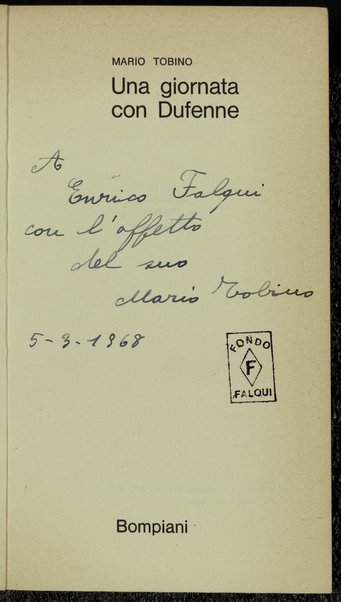 MARIO TOBINO
Una giornata
con Dufenne
A
Enrico Falqui
con l'affetto
del suo
Mario Tobino
5-3-1968
FONDO
F
FALQUI
Bompiani